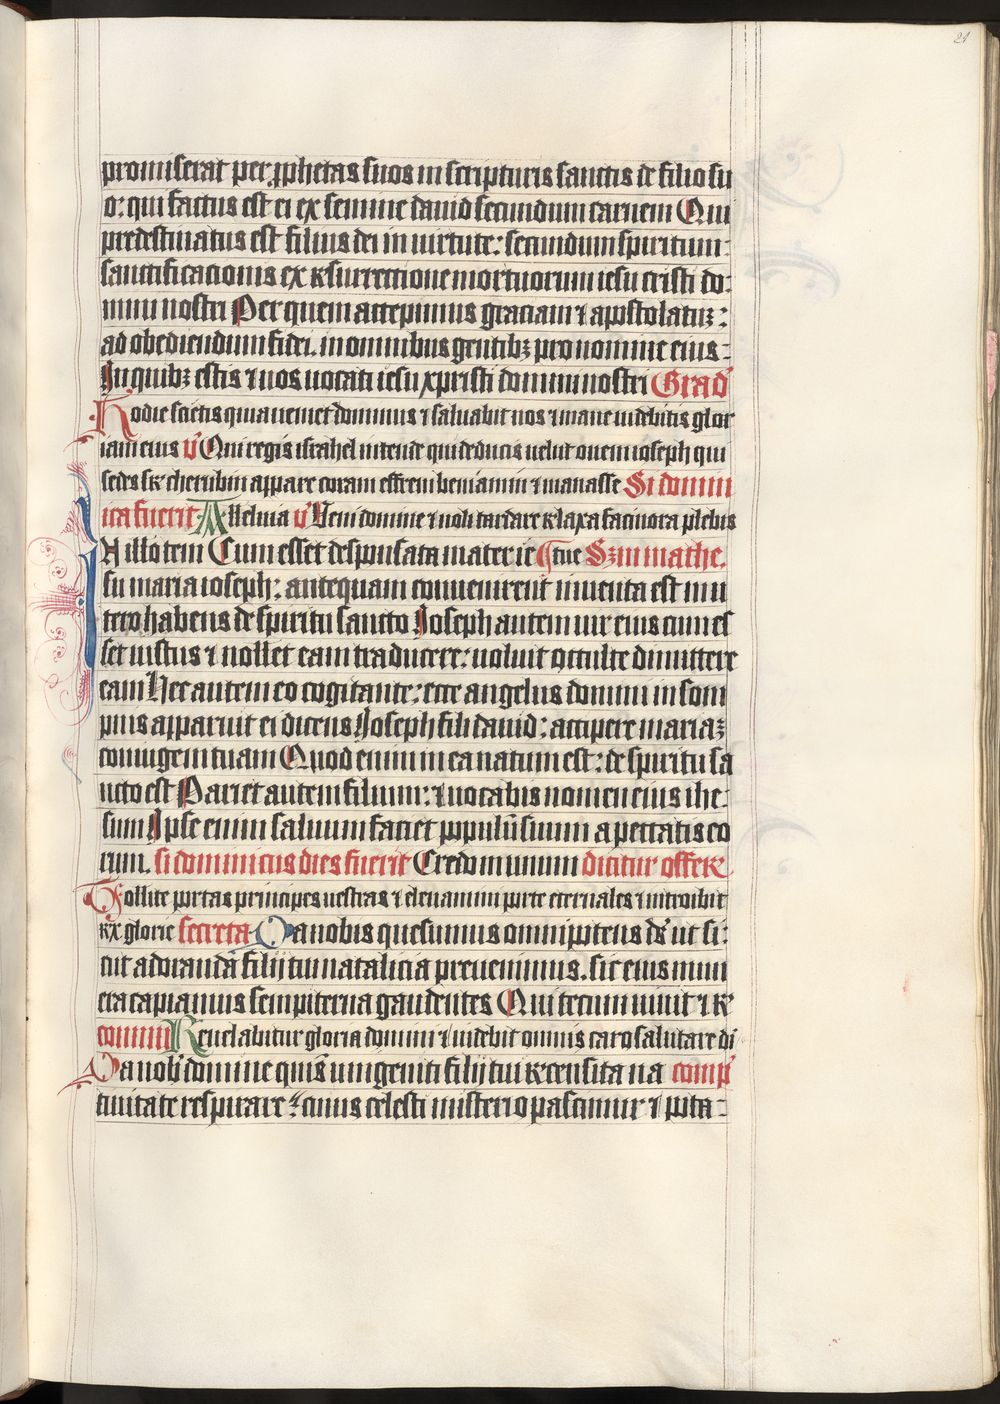 21
promiserat per prophetas suos in scripturis sanctis de filio su
o: qui factus est ei ex semine dauid secundum carnem Qui
predestinatus est filius dei in uirtute: secundum spiritum
sanctificacionis ex resurrectione mortuorum iesu cristi do:
mini nostri Per quem accepimus graciam ⁊ apostolatuꝫ:
ad obediendum fidei. in omnibus gentibꝫ pro nomine eius:
In quibꝫ estis ⁊ uos uocati iesu xpristi domini nostri Grad̕
Hodie scietis quia ueniet dominus ⁊ saluabit nos ⁊ mane uidebitis glor
iam eius v̕ Qui regis israhel intende qui deducis uelut ouem ioseph qui
sedes sr cherubin appare coram effrem beniamin ⁊ manasse Si domini
ica fuerit Alleluia v̕ Veni domine ⁊ noli tardare relaxa facinora plebis
In illo tem Cum esset desponsata mater ie tue Sꝫm mathe.
su maria ioseph: antequam conuenirent inuenta est in u
tero habens de spiritu sancto Ioseph autem uir eius cum es
set iustus ⁊ nollet eam traducere: uoluit occulte dimittere
eam Hec autem eo cogitante: ecce angelus domini in som
pnis apparuit ei dicens Ioseph fili dauid: accipere mariaꝫ
coniugem tuam Quod enim in ea natum est: de spiritu sa
ncto est Pariet autem filium: ⁊ uocabis nomen eius ihe:
sum Ipse enim saluum faciet populū suum a peccatis eo
rum. si dominicus dies fuerit Credo in unum dicitur offer
Tollite portas principes uestras ⁊ eleuamini porte eternales ⁊ introibit
rex glorie secreta Da nobis quesumus omnipotens ds̄ ut si:
cut adorandā filij tui natalicia preuenimus. sic eius mun
era capiamus sempiterna gaudentes Qui tecum uiuit ⁊ re
commū Reuelabitur gloria domini ⁊ uidebit omnis caro salutare di
Da nob̕ domine quīs unigeniti filij tui recensita na comp̕
tiuitate respirare: cuius celesti misterio pascimur ⁊ pota: